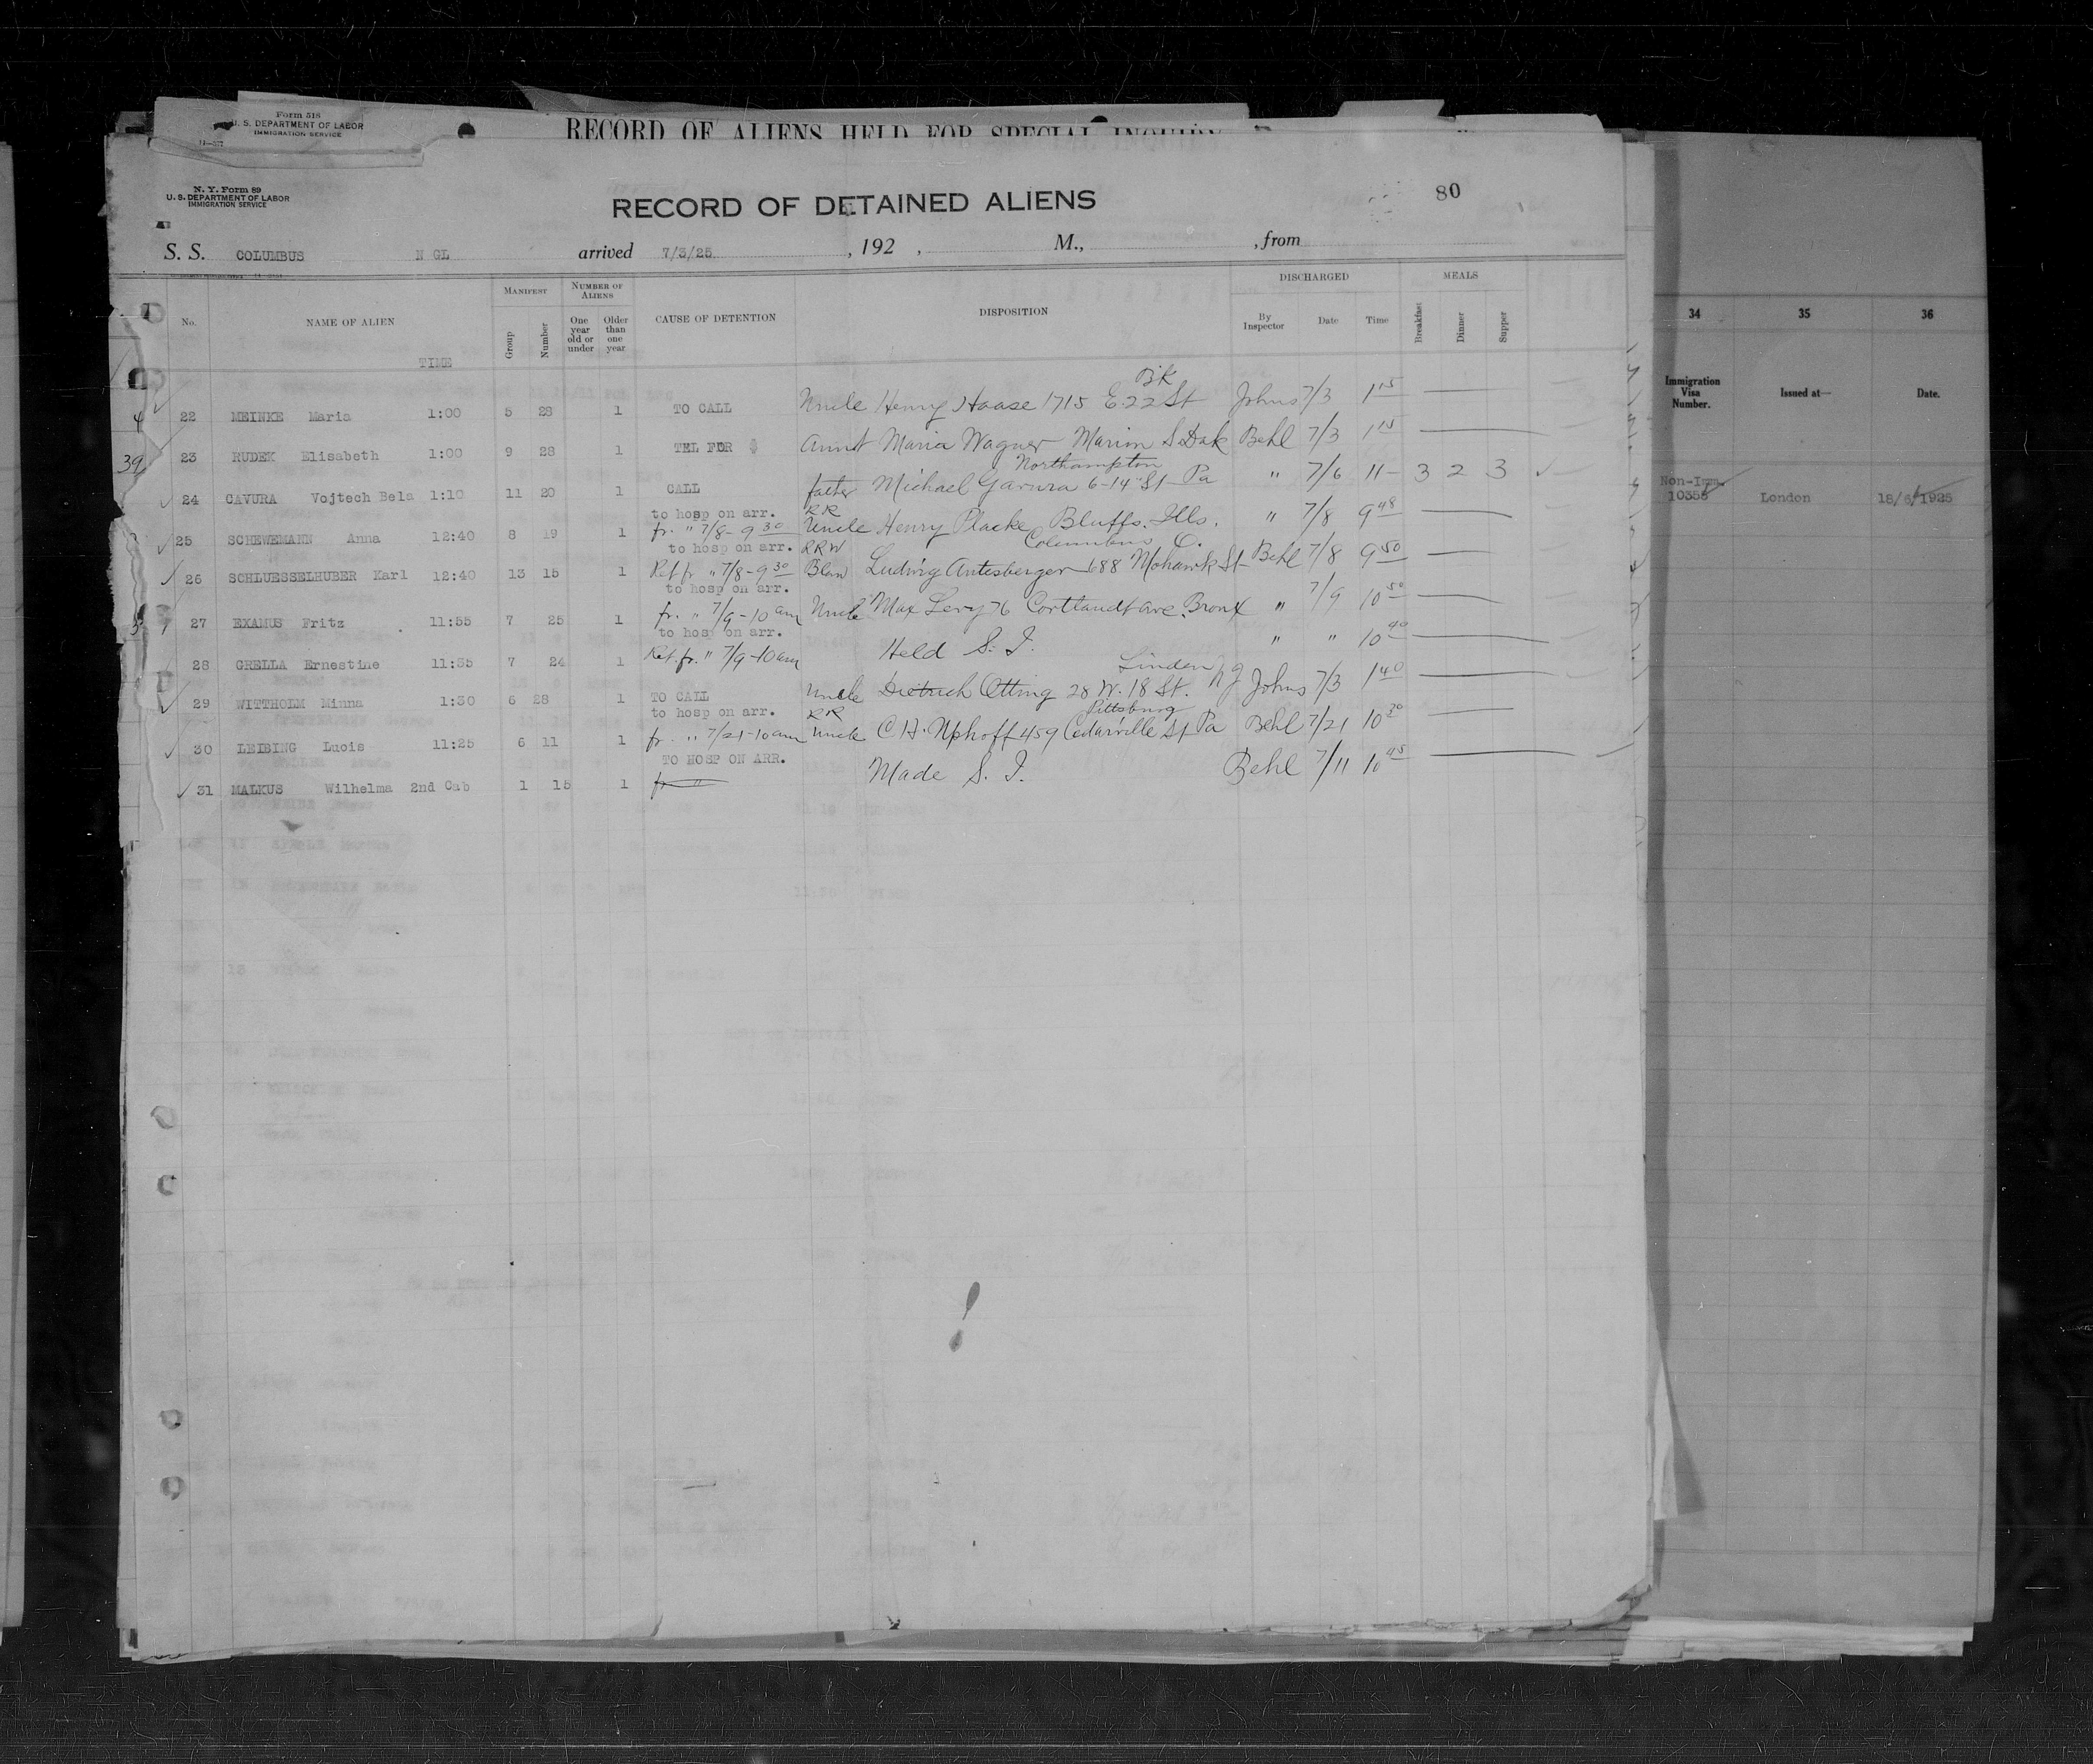 Form 518
U. S. DEPARTMENT OF LABOR
IMMIGRATION SERVICE
RECORD OF ALIENS HELD FOR SPECIAL INQUIRY
N. Y. Form 89
U. S. DEPARTMENT OF LABOR
IMMIGRATION SERVICE
RECORD OF DETAINED ALIENS
80
S. S. COLUMBUS N GL arrived 7/3/25 , 192 , M., , from
No. NAME OF ALIEN TIME MANIFEST Group Number NUMBER OF ALIENS One year old or under Older than one year CAUSE OF DETENTION DISPOSITION DISCHARGED By Inspector Date Time MEALS Breakfast Dinner Supper
Bk
4 22 MEINKE Maria 1:00 5 28 1 TO CALL Uncle Henry Haase 1715 E 22 St Johns 7/3 1 15
39 23 RUDEK Elisabeth 1:00 9 28 1 TEL FOR Aunt Maria Wagner Marion S. Dak Behl 7/3 1 15
Northampton
24 CAVURA Vojtech Bela 1:10 11 20 1 CALL father Michael Gavura 6-14" St Pa " 7/6 11 - 3 2 3
to hosp on arr. RR
25 SCHEWEMANN Anna 12:40 8 19 1 fr. " 7/8 - 9 30 Uncle Henry Placke Bluffs. Ills. " 7/8 9 48
to hosp on arr. RRW Columbus O.
26 SCHLUESSELHUBER Karl 12:40 13 15 1 Ret fr " 7/8 - 9 30 Ludwig Antesberger 688 Mohawk St Behl 7/8 9 50
to hosp on arr.
27 EXAMUS Fritz 11:55 7 25 1 fr. " 7/9 - 10 am Uncle Max Levy 76 Cortlandt ave. Bronx " 7/9 10 50
to hosp on arr.
28 GRELLA Ernestine 11:55 7 24 1 Ret. fr. " 7/9 - 10 am Held S. I. " " 10 40
Linden N J
29 WITTHOLM Minna 1:30 6 28 1 TO CALL Uncle Dietrich Otting 28 W. 18 St. Johns 7/3 1 40
to hosp on arr. RR Pittsburg
30 LEIBING Lucis 11:25 6 11 1 fr. " 7/21 - 10 am Uncle C H. Uphoff 459 Cedarville St Pa Behl 7/21 10 30
TO HOSP ON ARR.
31 MALKUS Wilhelma 2nd Cab 1 15 1 fr " Made S. I. Behl 7/11 10 45
34 35 36
Immigration Visa Number. Issued at— Date.
Non-Imm.
10358 London 18/6/1925